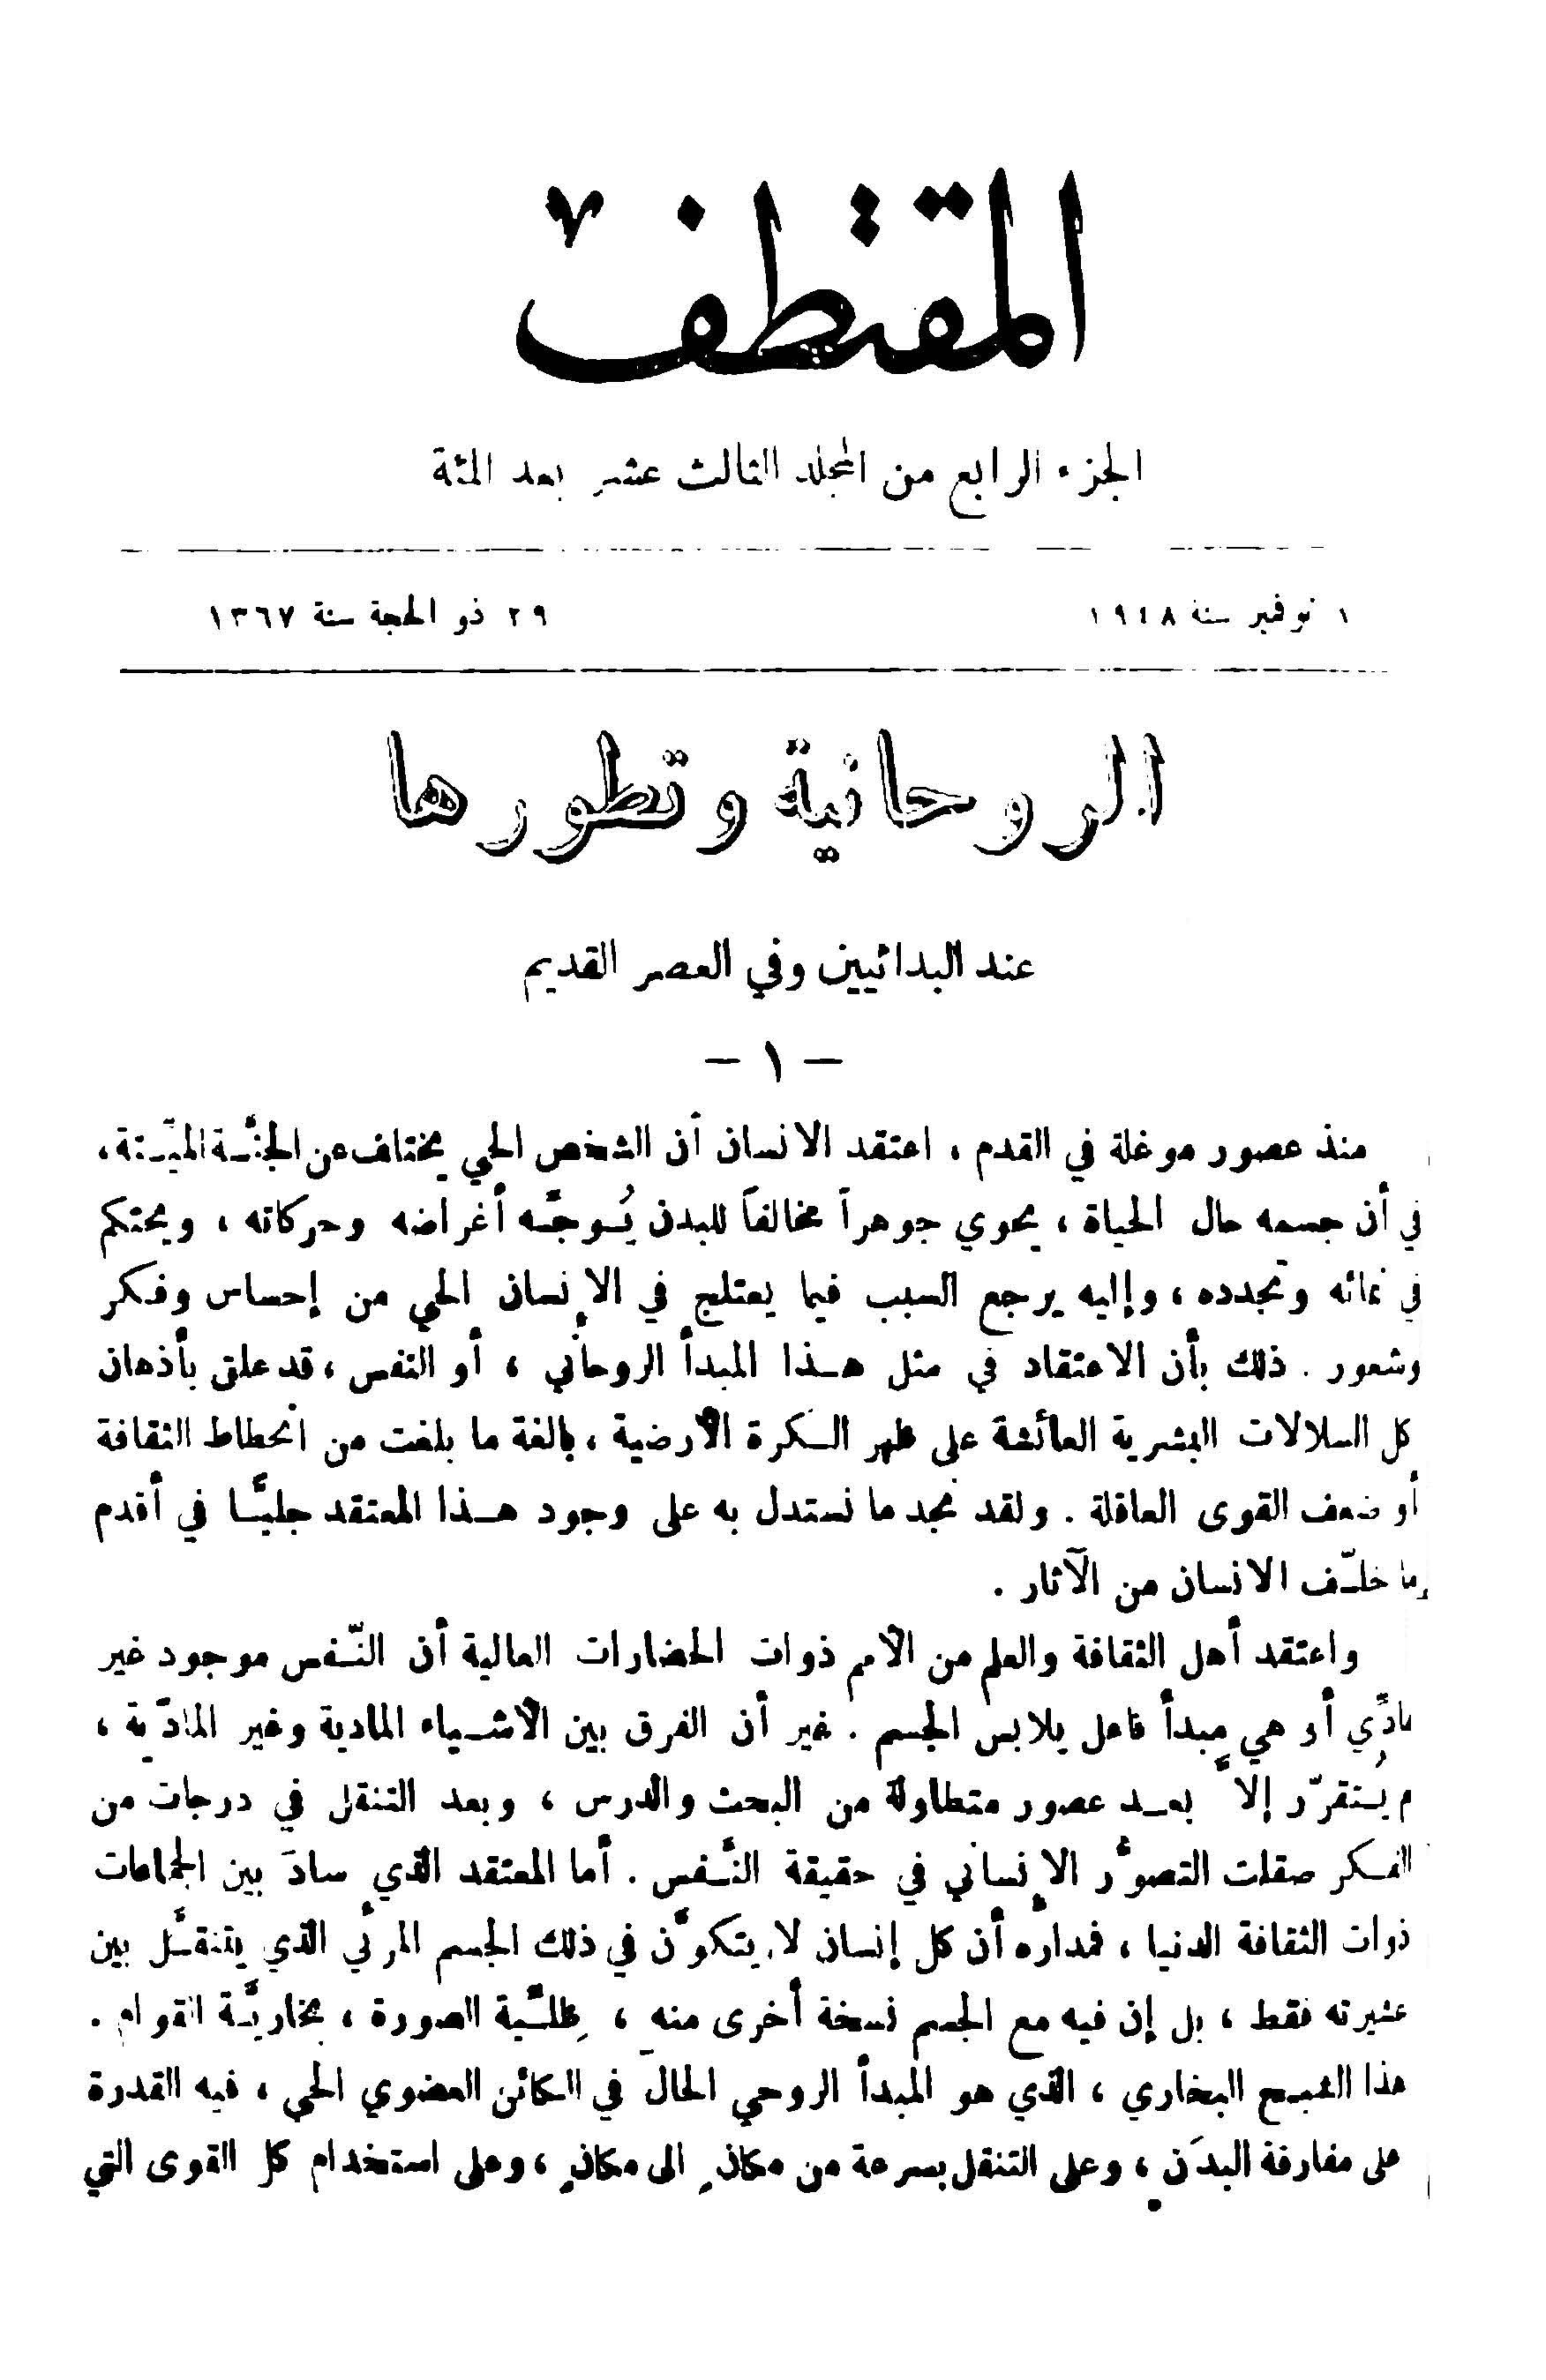 المقتطف
الجزء الرابع من المجلد الثالث عشر بعد المئة
١ نوفمبر سنة ١٩٤٨
٢٩ ذو الحجة سنة ١٣٦٧
الروحانية وتطورها
عند البدائيين وفي العصر القديم
— ١ —
منذ عصور موغلة في القدم ، اعتقد الانسان أن الشخص الحي يختلف عن الجثَّة الميّتة ،
في أن جسمه حال الحياة ، يحوي جوهراً مخالفاً للبدن يُوجَّه أغراضه وحركاته ، ويحتكم
في نمائه وتجدده ، وإليه يرجع السبب فيما يعتلج في الإنسان الحي من إحساس وفكر
وشعور . ذلك بأن الاعتقاد في مثل هذا المبدأ الروحاني ، أو النفس ، قد علق بأذهان
كل السلالات البشرية العائشة على ظهر الكرة الأرضية ، بالغة ما بلغت من انحطاط الثقافة
أو ضعف القوى العاقلة . ولقد نجد ما نستدل به على وجود هذا المعتقد جليًّا في أقدم
ما خلّف الانسان من الآثار .
واعتقد أهل الثقافة والعلم من الأمم ذوات الحضارات العالية أن النّفس موجود غير
مادِّي أو هي مبدأ فاعل يلابس الجسم . غير أن الفرق بين الأشياء المادية وغير المادّية ،
لم يُتقرّر إلاَّ بعد عصور متطاولة من البحث والدرس ، وبعد التنقل في درجات من
الفكر صقلت التصوُّر الإنساني في حقيقة النَّفس . أما المعتقد الذي سادَ بين الجماعات
ذوات الثقافة الدنيا ، فمداره أن كل إنسان لا يتكوَّن في ذلك الجسم المرئي الذي يتنقَّل بين
عشيرته فقط ، بل إن فيه مع الجسم نسخة أخرى منه ، ظلِّيَّة الصورة ، بخاريَّة القوام .
هذا الشبح البخاري ، الذي هو المبدأ الروحي الحالّ في الكائن العضوي الحي ، فيه القدرة
على مفارقة البدَن ، وعلى التنقل بسرعة من مكانٍ الى مكانٍ ، وعلى استخدام كل القوى التي